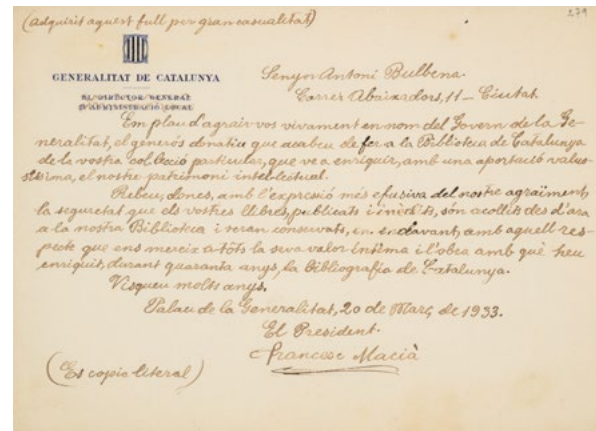 (adquirit aquest full per gran casualitat)
279
GENERALITAT DE CATALUNYA
EL DIRECTOR GENERAL
D'ADMINISTRACIÓ LOCAL
Senyor Antoni Bulbena.
Carrer Abaixadors, 11 – Ciutat.
Em plau d'agrair-vos vivament en nom del Govern de la Ge-
neralitat, el generós donatiu que acabeu de fer a la Biblioteca de Catalunya
de la vostra col·lecció particular, que ve a enriquir, amb una aportació valuo-
síssima, el nostre patrimoni intelectual.
Rebeu, doncs, amb l'expressió més efusiva del nostre agraïment,
la seguretat que els vostres llibres, publicats i inèdits, són acollits des d'ara
a la nostra Biblioteca i seran conservats, en endavant, amb aquell res-
pecte que ens mereix a tots la seva valor íntima i l'obra amb què heu
enriquit, durant quaranta anys, la Bibliografia de Catalunya.
Visqueu molts anys.
Palau de la Generalitat, 20 de Març de 1933.
El President.
Francesc Macià
(És copia literal)